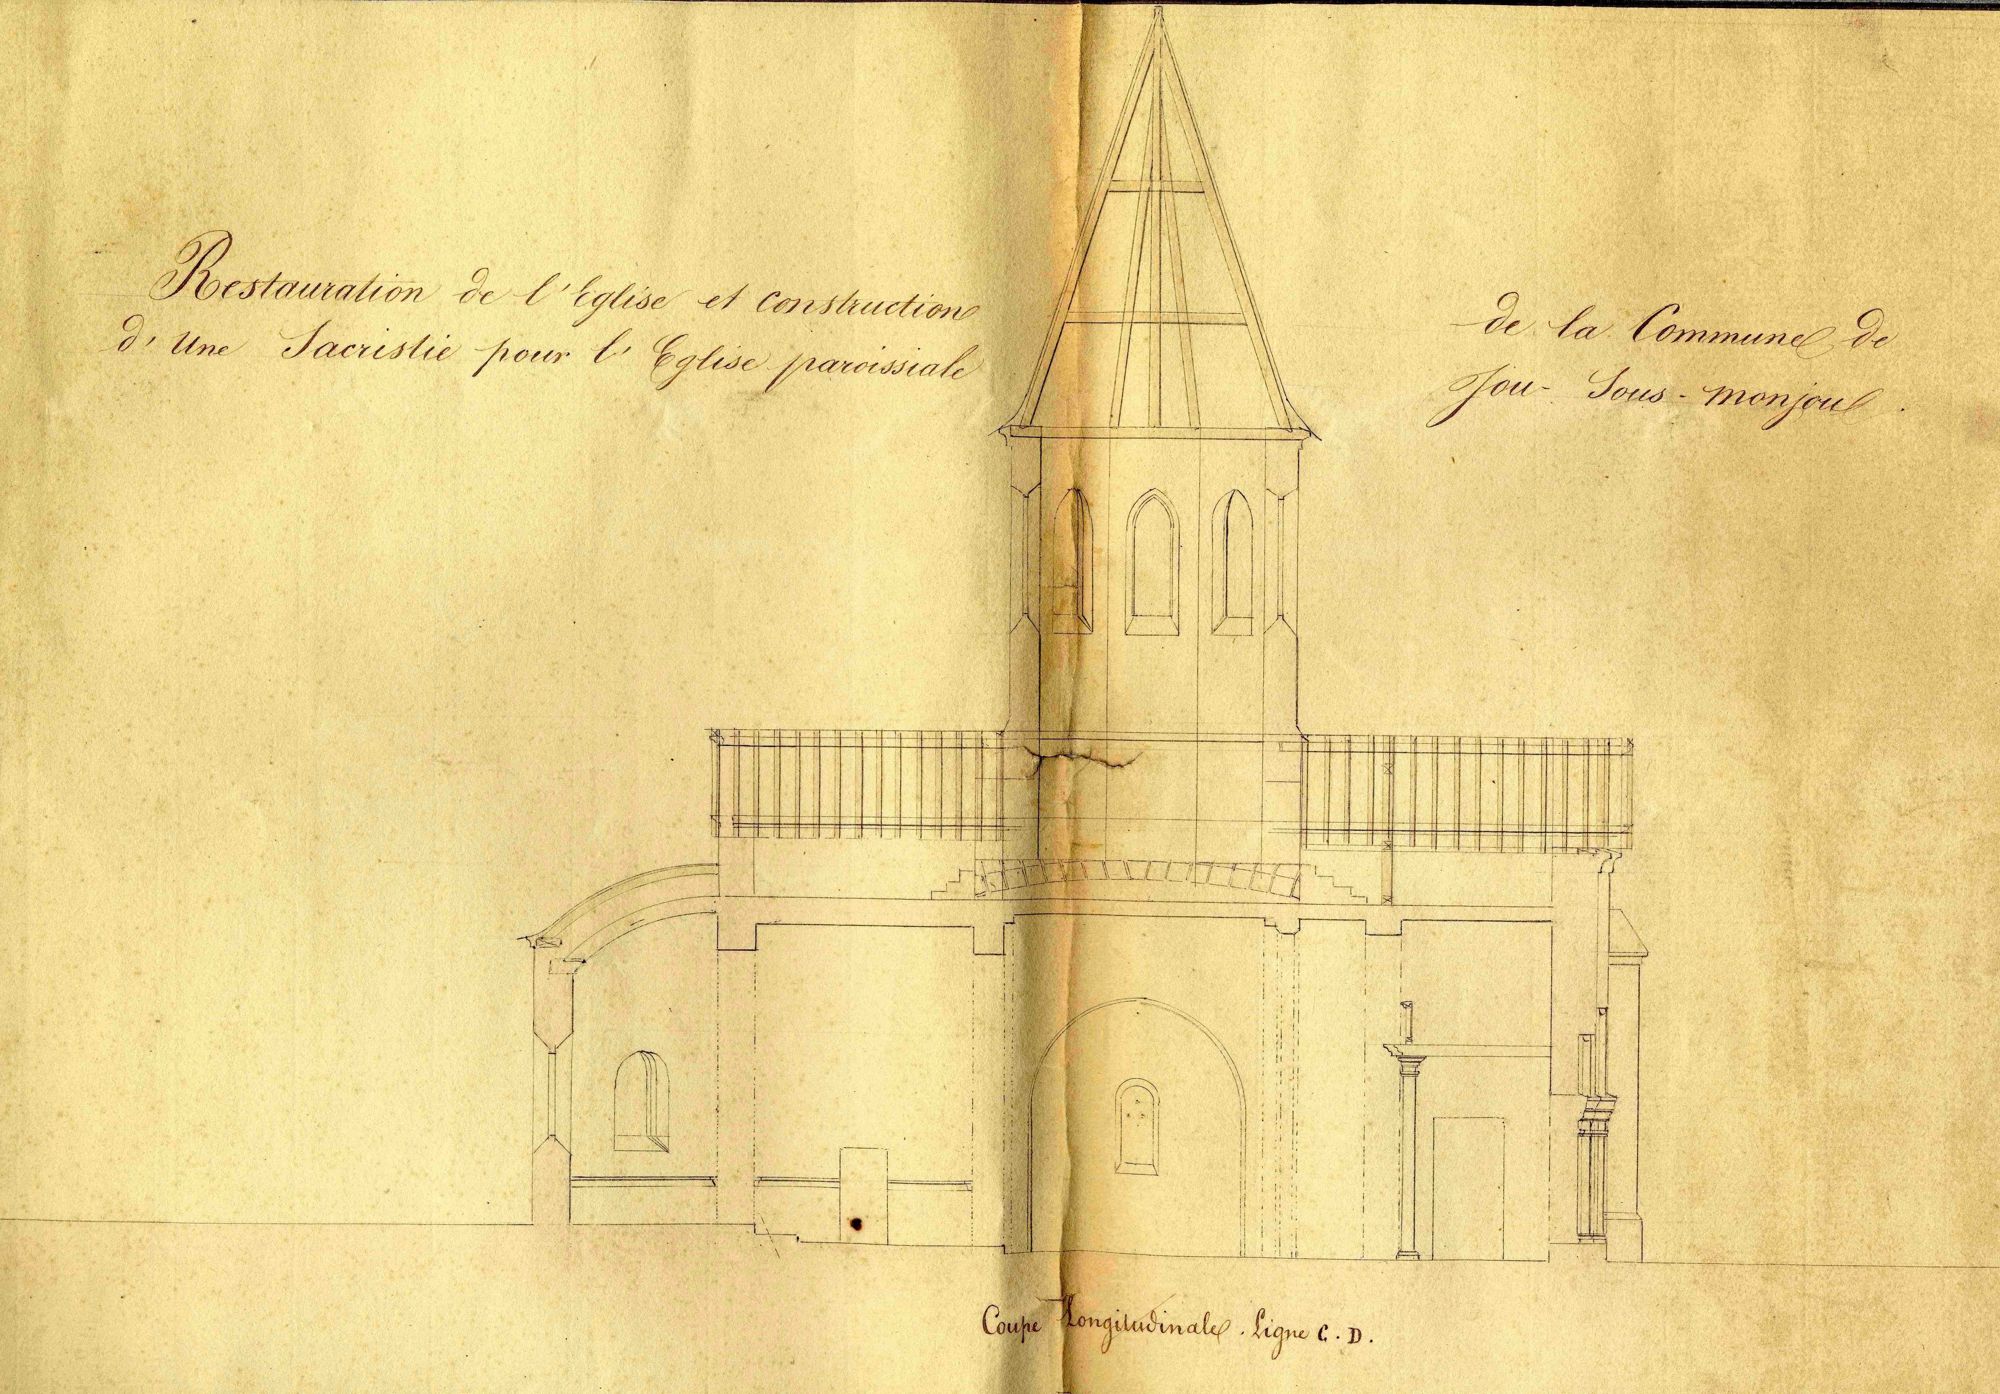 Restauration de l'Eglise et construction
d'Une Sacristie pour l'Eglise paroissiale
de la Commune de
Jou-Sous-monjou.
Coupe Longitudinale. Ligne C. D.